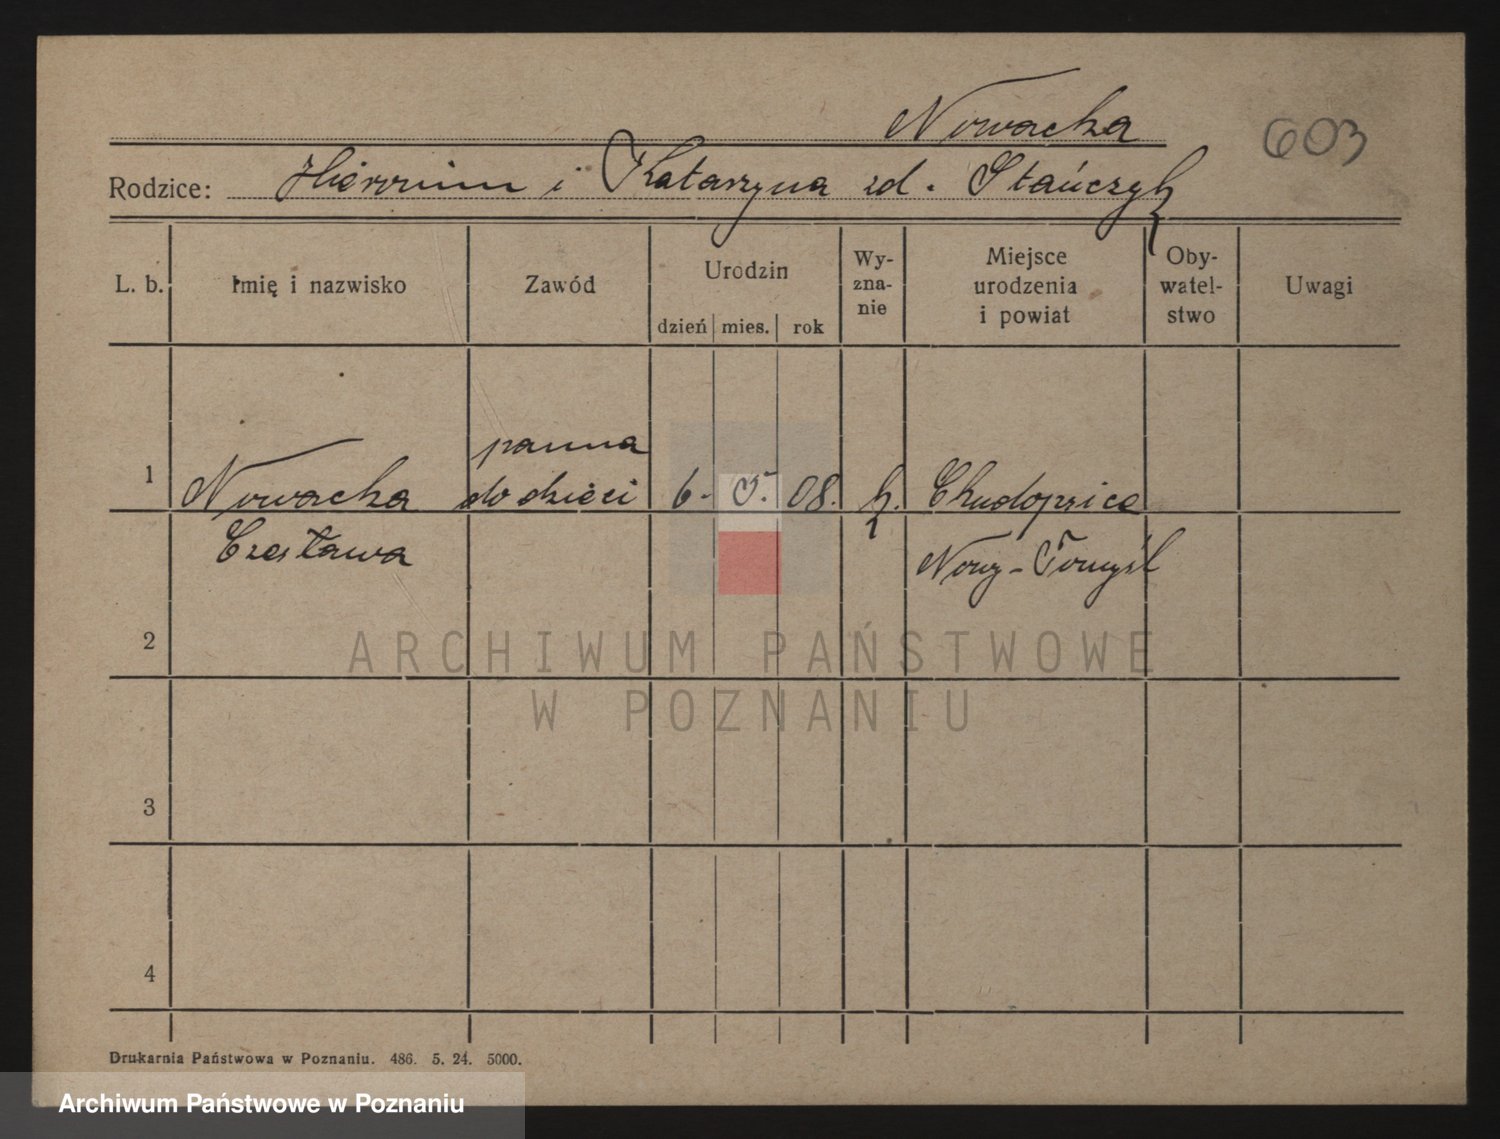 Nowacka
603
Rodzice: Hieronim i Katarzyna zd. Stańczyk
L. b. Imię i nazwisko Zawód Urodzin Wy-zna-nie Miejsce urodzenia i powiat Oby-watel-stwo Uwagi
dzień mies. rok
panna
1 Nowacka do dzieci 6. 5. 08. k. Chudopsice
Czesława Nowy-Tomyśl
2
ARCHIWUM PAŃSTWOWE
W POZNANIU
3
4
Drukarnia Państwowa w Poznaniu. 486. 5. 24. 5000.
Archiwum Państwowe w Poznaniu